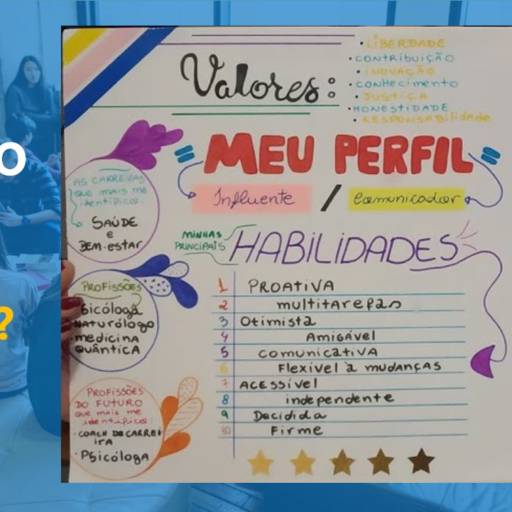 O
?
Valores:
• LIBERDADE
• CONTRIBUIÇÃO
• INOVAÇÃO
• CONHECIMENTO
• JUSTIÇA
• HONESTIDADE
• RESPONSABILIDADE
MEU PERFIL
Influente / Comunicador
AS CARREIRAS
que mais me
identifico:
SAÚDE
E
BEM-ESTAR
MINHAS
PRINCIPAIS
HABILIDADES
1 PROATIVA
2 multitarefas
3 Otimista
4 Amigável
5 COMUNICATIVA
6 Flexível à mudanças
7 ACESSÍVEL
8 independente
9 Decidida
10 Firme
PROFISSÕES
Psicóloga
NATURÓLOGO
medicina
quântica
PROFISSÕES
DO FUTURO
que mais me
identifico
• COACH DE CARREI
RA
• Psicóloga